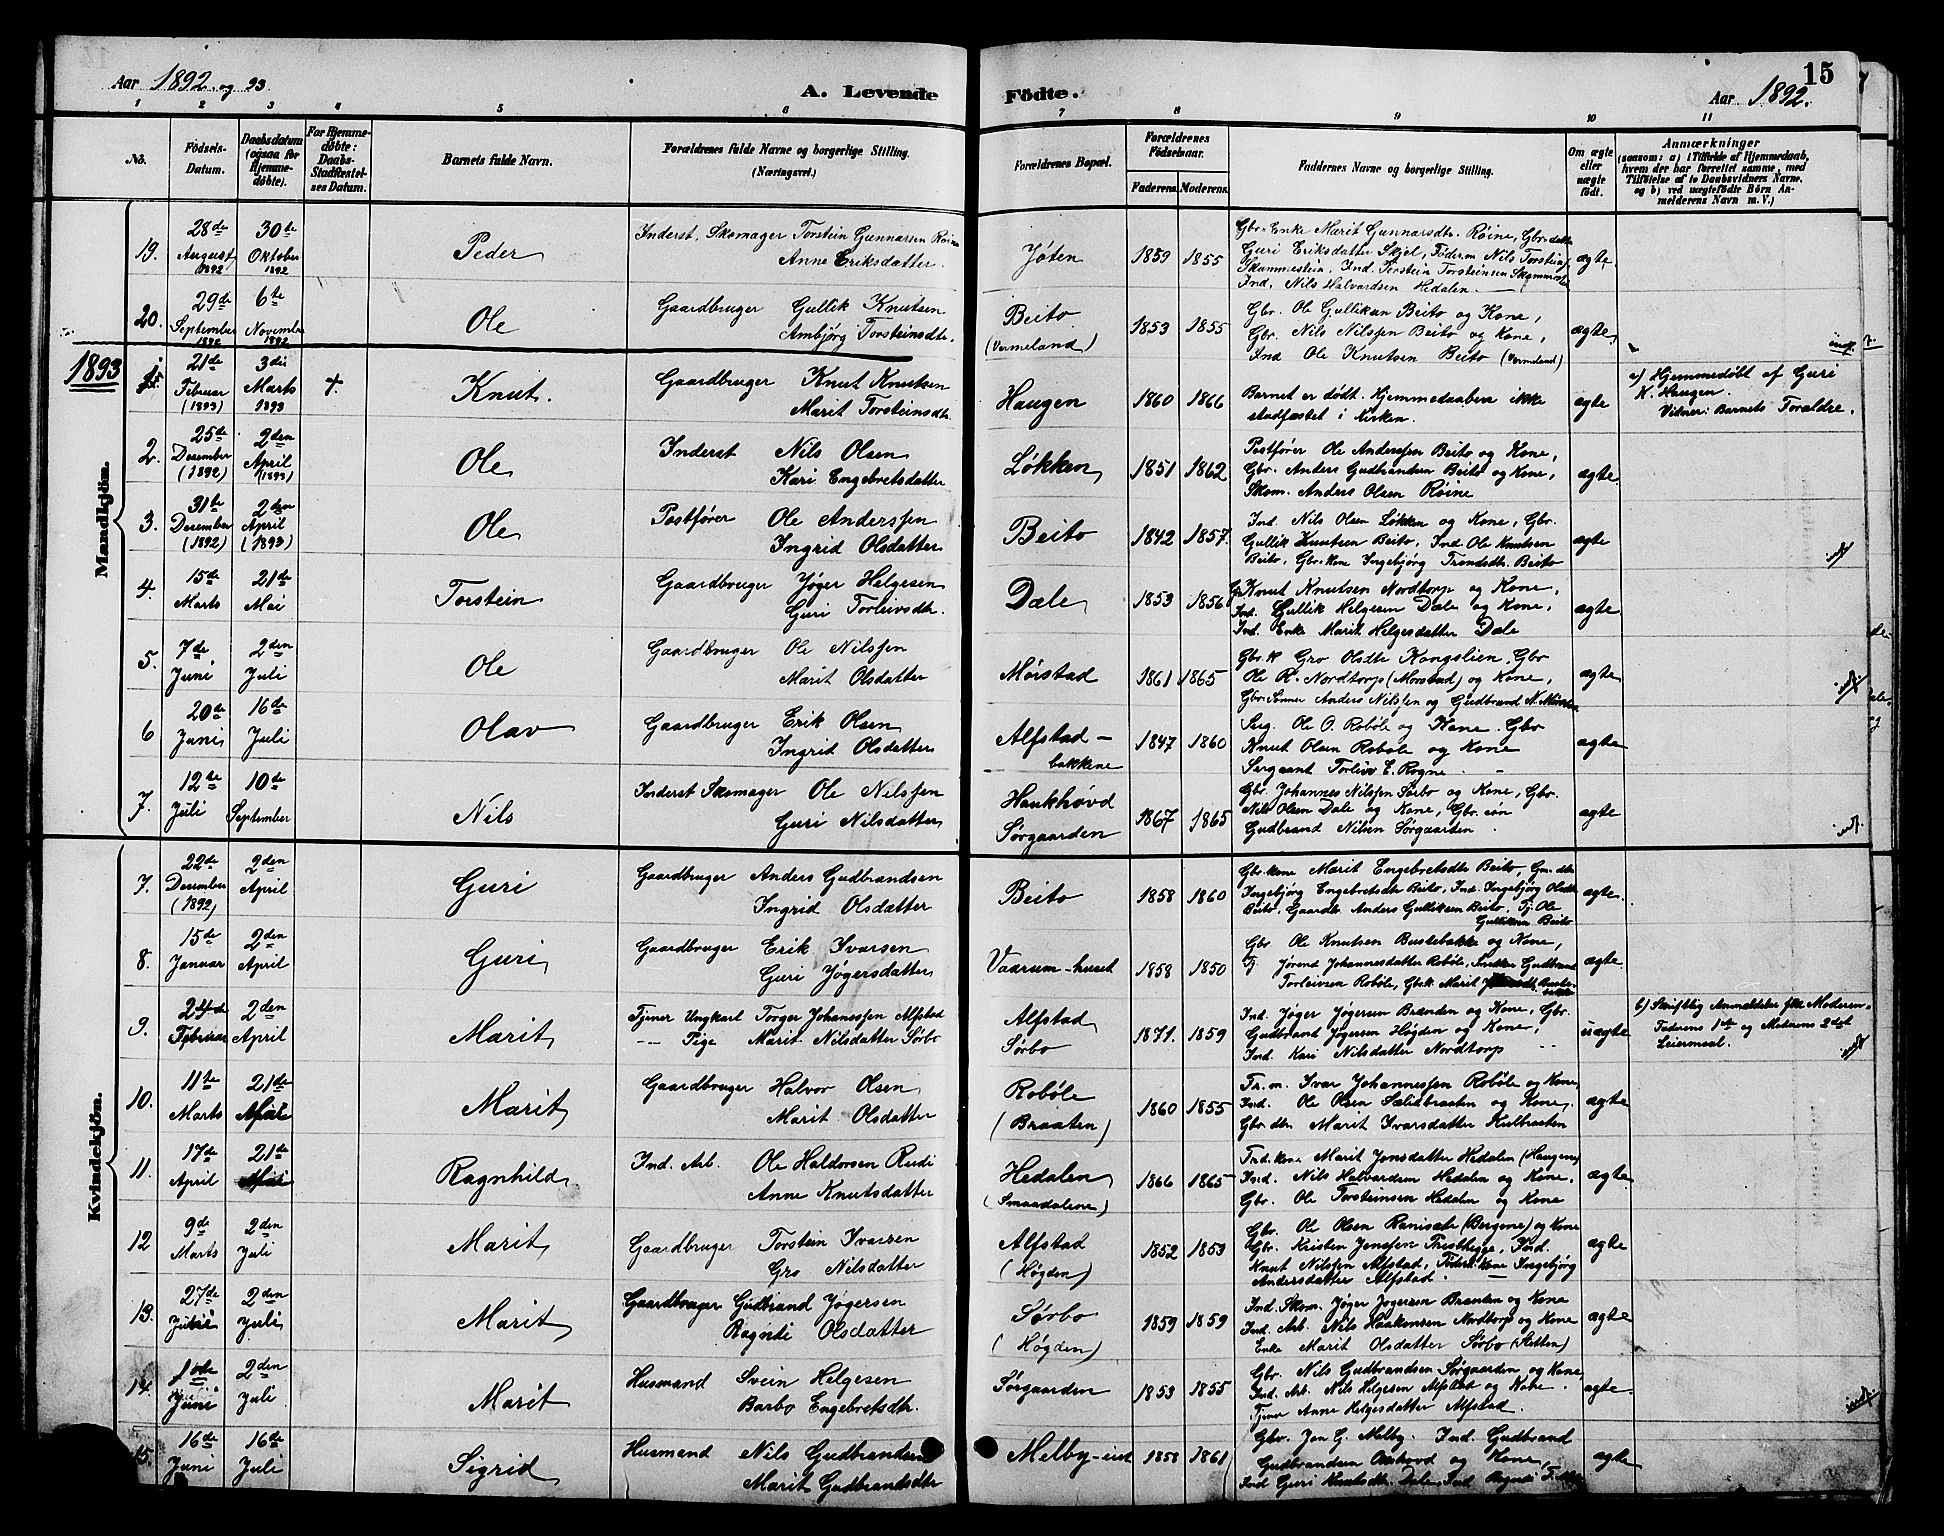 Aar 1892 og 93.
A. Levende
Födte.
Aar 1892.
15
1 2 3 4 5 6 7 8 9 10 11
No.
Födsels-Datum.
Daabsdatum (ogsaa for Hjemmedöbte).
For Hjemmedöbte: Daabs-Stadfæstelses Datum.
Barnets fulde Navn.
Forældrenes fulde Navne og borgerlige Stilling. (Næringsvei.)
Forældrenes Bopæl.
Forældrenes Födselsaar.
Faderens. Moderens.
Faddernes Navne og borgerlige Stilling.
Om ægte eller uægte födt.
Anmærkninger
(saasom: a) i Tilfælde af Hjemmedaab, hvem der har forrettet samme, med Tilföielse af to Daabsvidners Navne, og b) ved uægtefödte Börn Anmelderens Navn m. V.)
Mandkjön.
19. 28de August 1892 30te Oktober 1892 Peder Inderst, Skomager Torstein Gunnarsen Røine
Anne Eriksdatter. Jøten 1859 1855 Gbr. Enke Marit Gunnarsdtr. Røine, Gbr. datter
Guri Eriksdatter Skjel, Føderm Nils Torsteins
Skammestein, Ind. Torstein Torsteinsen Skammest
Ind. Nils Halvardsen Hedalen. ægte.
20. 29de September 1892 6te November 1892 Ole Gaardbruger Gullik Knutsen
Ambjörg Torsteinsdtr. Beito (Vermeland) 1853 1855 Gbr. Ole Gulliksen Beito og Kone,
Gbr. Nils Nilssen Beito og Kone,
Ind Ole Knutsen Beito (Vermeland) ægte
1893
1. 21de Februar (1893) 3die Marts 1893 +. Knut. Gaardbruger Knut Knutsen
Marit Torsteinsdtr. Haugen 1860 1866 Barnet er dødt. Hjemmedaaben ikke
stadfæstet i Kirken. ægte a) Hjemmedøbt af Guri
K. Haugen.
Vidner: Barnets Forældre.
2. 25de Desember (1892) 2den April (1893) Ole Inderst Nils Olsen
Kari Engebretsdatter Løkken 1851 1862 Postfører Ole Anderssen Beito og Kone,
Gbr. Anders Gudbrandsen Beito og Kone,
Skom. Anders Olsen Røine ægte.
3. 31te Desember (1892) 2den April (1893) Ole Postfører Ole Anderssen
Ingrid Olsdatter Beito 1842 1857. Ind. Nils Olsen Løkken og Kone, Gbr.
Gullik Knutsen Beito, Ind Ole Knutsen
Beito, Gbr. Kone Ingebjørg Trondsdtr. Beito ægte
4. 15de Marts 21de Mai Torstein Gaardbruger Jøger Helgesen
Guri Torleivsdtr. Dale 1853 1856 Knut Knutsen Nordtorp og Kone,
Ind. Gullik Helgesen Dale og Kone,
Ind. Enke Marit Helgesdatter Dale ægte
5. 7de Juni 2den Juli Ole Gaardbruger Ole Nilssen
Marit Olsdatter Mørstad 1861 1865 Gbr. K Gro Olsdtr Kongslien, Gbr
Ole R. Nordtorp (Mørstad) og Kone,
Gbr Sønner Anders Nilssen og Gudbrand N. Mørstad ægte
6 20de Juni 16de Juli Olav Gaardbruger Erik Olsen
Ingrid Olsdatter Alfstad-bakkene 1847 1860 Serg. Ole O. Robøle og Kone. Gbr
Knut Olsen Robøle og Kone
Sergeant Torleiv E. Rogne. ægte
7. 12te Juli 10de September Nils Inderst Skomager Ole Nilssen
Guri Nilsdatter Haukhøvd Sørgaarden 1867 1865 Gbr. Johannes Nilssen Sørbo og Kone, Gbr.
Nils Olsen Dale og Kone, Gbr. søn
Gudbrand Nilsen Sørgaarden. ægte
Kvindekjön.
7. 22de Desember (1892) 2den April Guri Gaardbruger Anders Gudbrandsen
Ingrid Olsdatter Beito 1858 1860 Gbr. kone Marit Engebretsdtr Beito, Gbr. dtr
Ingebjörg Engebretsdtr Beito, Ind. Ingebjörg Olsdtr
Beito, Gaardbr Anders Gulliksen Beito. Tj. Ole
Gulliksen Beito ægte.
8. 15de Januar 2den April Guri Gaardbruger Erik Ivarsen
Guri Jøgersdatter Vaarum-huset 1858 1850 Gbr. Ole Knutsen Bustebakke og Kone,
Tj Jørend Johannesdatter Robøle, Gudbrand
Torleivsen Robøle, Gbr. K Marit ægte
9. 24de Februar 2den April Marit Tjener Ungkarl Torger Johanssen Alfstad
-- Pige Marit Nilsdatter Sørbo Alfstad Sørbo 1871. 1859 Ind. Jøger Jøgersen Brænden og Kone, Gbr.
Gudbrand Jøgersen Høgden og Kone,
Ind. Kari Nilsdatter Nordtorp uægte b) Skriftlig Anmeldelse fra Moderen.
Faderens 1ste og Moderens 2det
Leiermaal.
10. 11te Marts 21de Mai Marit Gaardbruger Halvor Olsen
Marit Olsdatter Robøle (Braaten) 1860 1855 Fr. m. Ivar Johannessen Robøle og Kone,
Ind. Ole Olsen Sælidbraaten og Kone,
Gbr dtr Marit Ivarsdatter Kulbraaten ægte
11. 17de April 21de Mai Ragnhild Ind. Arb. Ole Haldorsen Rudi
Anne Knutsdatter Hedalen (Smaadalene) 1866 1865 Ind. kone Marit Jonsdatter Hedalen (Haugen)
Ind. Nils Halvardsen Hedalen og Kone,
Gbr. Ole Torsteinsen Hedalen og Kone ægte.
12 9de Marts 2den Juli Marit Gaardbruger Torstein Ivarsen
Gro Nilsdatter Alfstad (Høgden) 1852 1853 Gbr. Ole Olsen Ranisæte (Bergene) og Kone
Gbr. Kristen Jenssen Presthegge, Ind.
Knut Nilssen Alfstad, Føder. kone Ingebjörg
Andersdatter Alfstad. ægte
13. 27de 2den Juli Marit Gaardbruger Gudbrand Jøgersen
Ragndi Olsdatter Sørbo (Høgden) 1859 1859 Ind. Skom. Jøger Jøgersen Brænden og Kone
Ind. Arb. Nils Haakensen Nordtorp og Kone
Enke Marit Olsdatter Sørbo (Sletten) ægte
14. Juni 2den Juli Marit Husmand Svein Helgesen
Barbo Engebretsdtr. Sørgaarden 1853 1855 Gbr. Nils Gudbrandsen Sørgaarden og Kone
Ind. Arb. Nils Helgesen Alfstad og Kone.
Tjener Anne Helgesdatter Alfstad. ægte.
15. 16de Juni 16de Juli Sigrid Husmand Nils Gudbrandsen
Marit Gudbrandsdtr Melby-eiet 1858 1861 Gbr. Jon G. Melby. Ind. Gudbrand
Gudbrandsen og Kone,
Ind Guri Knutsdtr. Dale, Ind Ragndi ægte